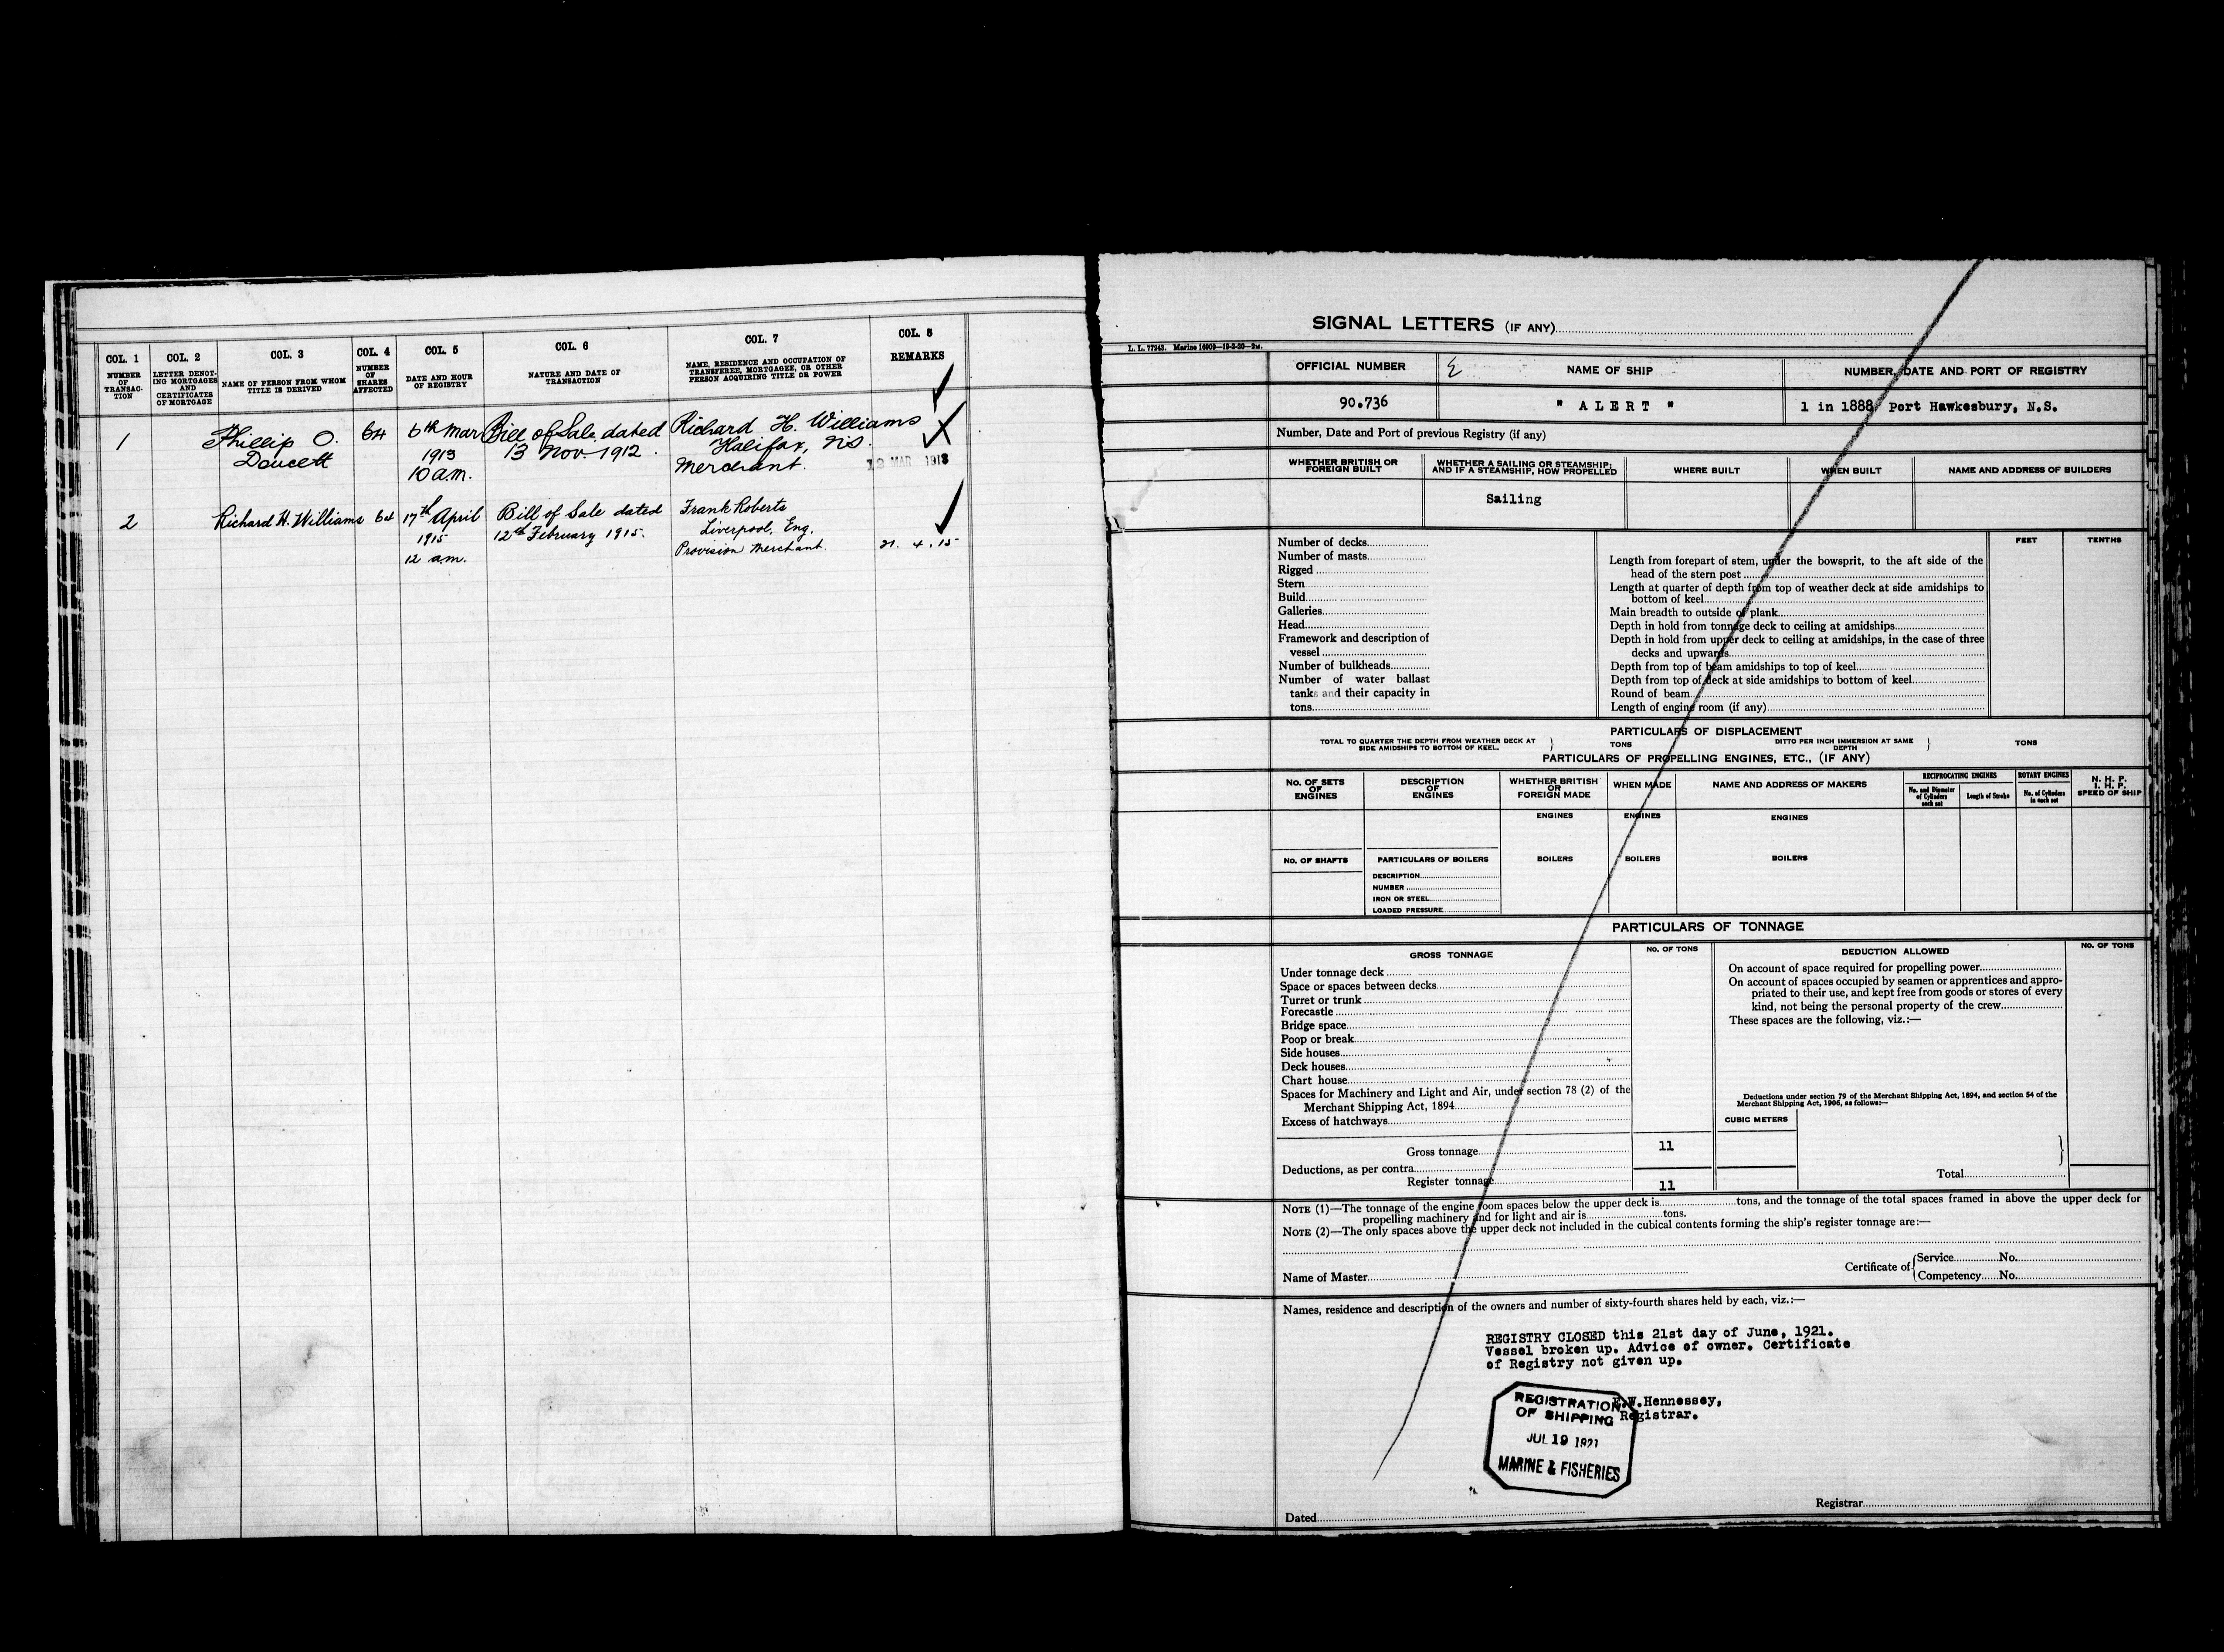 COL. 1
NUMBER
OF
TRANSAC-
TION
COL. 2
LETTER DENOT-
ING MORTGAGES
AND
CERTIFICATES
OF MORTGAGE
COL. 3
NAME OF PERSON FROM WHOM
TITLE IS DERIVED
COL. 4
NUMBER
OF
SHARES
AFFECTED
COL. 5
DATE AND HOUR
OF REGISTRY
COL. 6
NATURE AND DATE OF
TRANSACTION
COL. 7
NAME, RESIDENCE AND OCCUPATION OF
TRANSFEREE, MORTGAGEE, OR OTHER
PERSON ACQUIRING TITLE OR POWER
COL. 8
REMARKS
1
Phillip O.
Doucett
64
6th Mar
1913
10 a.m.
Bill of Sale dated
13 Nov 1912.
Richard H. Williams
Halifax, NS.
Merchant.
12 MAR 1913
2
Richard H. Williams
64
17th April
1915
12 a.m.
Bill of Sale dated
12th February 1915.
Frank Roberts
Liverpool, Eng.
Provision Merchant.
21. 4. 15
SIGNAL LETTERS (IF ANY)
L. L. 77243. Marine 16909—19-2-20—2M.
OFFICIAL NUMBER
NAME OF SHIP
NUMBER, DATE AND PORT OF REGISTRY
90.736
" A L E R T "
1 in 1888, Port Hawkesbury, N.S.
Number, Date and Port of previous Registry (if any)
WHETHER BRITISH OR
FOREIGN BUILT
WHETHER A SAILING OR STEAMSHIP;
AND IF A STEAMSHIP, HOW PROPELLED
WHERE BUILT
WHEN BUILT
NAME AND ADDRESS OF BUILDERS
Sailing
Number of decks
Number of masts
Rigged
Stern
Build
Galleries
Head
Framework and description of
vessel
Number of bulkheads
Number of water ballast
tanks and their capacity in
tons
FEET
TENTHS
Length from forepart of stem, under the bowsprit, to the aft side of the
head of the stern post
Length at quarter of depth from top of weather deck at side amidships to
bottom of keel
Main breadth to outside of plank
Depth in hold from tonnage deck to ceiling at amidships
Depth in hold from upper deck to ceiling at amidships, in the case of three
decks and upwards
Depth from top of beam amidships to top of keel
Depth from top of deck at side amidships to bottom of keel
Round of beam
Length of engine room (if any)
PARTICULARS OF DISPLACEMENT
TOTAL TO QUARTER THE DEPTH FROM WEATHER DECK AT
SIDE AMIDSHIPS TO BOTTOM OF KEEL.
TONS
DITTO PER INCH IMMERSION AT SAME
DEPTH
TONS
PARTICULARS OF PROPELLING ENGINES, ETC., (IF ANY)
No. OF SETS
OF
ENGINES
DESCRIPTION
OF
ENGINES
WHETHER BRITISH
OR
FOREIGN MADE
WHEN MADE
NAME AND ADDRESS OF MAKERS
RECIPROCATING ENGINES
No. and Diameter
of Cylinders
each set
Length of Stroke
ROTARY ENGINES
No. of Cylinders
in each set
N. H. P.
I. H. P.
SPEED OF SHIP
ENGINES
ENGINES
ENGINES
No. OF SHAFTS
PARTICULARS OF BOILERS
BOILERS
BOILERS
BOILERS
DESCRIPTION
NUMBER
IRON OR STEEL
LOADED PRESSURE
PARTICULARS OF TONNAGE
GROSS TONNAGE
No. OF TONS
DEDUCTION ALLOWED
No. OF TONS
Under tonnage deck
Space or spaces between decks
Turret or trunk
Forecastle
Bridge space
Poop or break
Side houses
Deck houses
Chart house
Spaces for Machinery and Light and Air, under section 78 (2) of the
Merchant Shipping Act, 1894
Excess of hatchways
Gross tonnage
11
Deductions, as per contra
Register tonnage
11
On account of space required for propelling power
On account of spaces occupied by seamen or apprentices and appro-
priated to their use, and kept free from goods or stores of every
kind, not being the personal property of the crew
These spaces are the following, viz.:—
Deductions under section 79 of the Merchant Shipping Act, 1894, and section 54 of the
Merchant Shipping Act, 1906, as follows:—
CUBIC METERS
Total
NOTE (1)—The tonnage of the engine room spaces below the upper deck is tons, and the tonnage of the total spaces framed in above the upper deck for
propelling machinery and for light and air is tons.
NOTE (2)—The only spaces above the upper deck not included in the cubical contents forming the ship's register tonnage are:—
Name of Master
Certificate of
Service No.
Competency No.
Names, residence and description of the owners and number of sixty-fourth shares held by each, viz.:—
REGISTRY CLOSED this 21st day of June, 1921.
Vessel broken up. Advice of owner. Certificate
of Registry not given up.
E.W.Hennessey,
Registrar.
REGISTRATION
OF SHIPPING
JUL 19 1921
MARINE & FISHERIES
Registrar
Dated